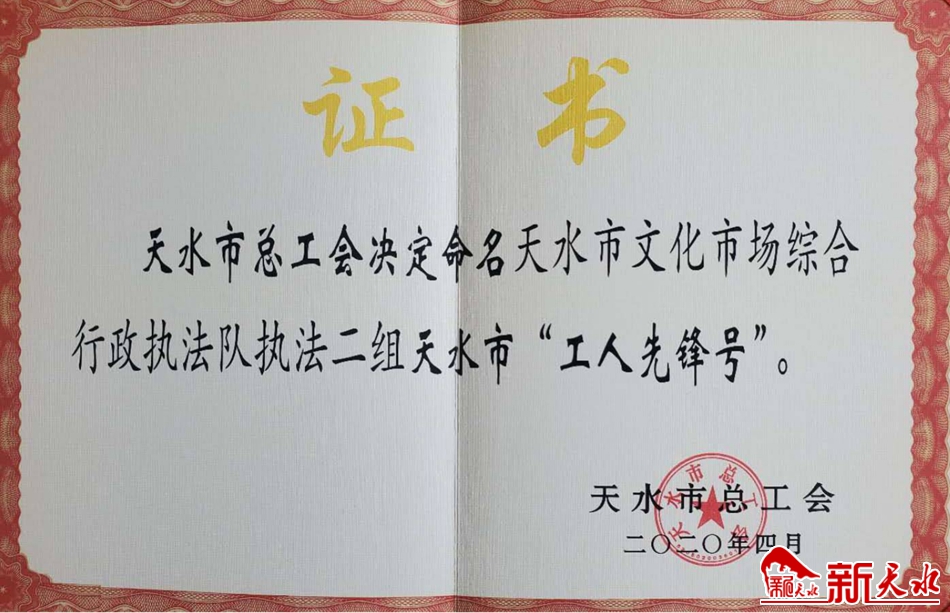 证书
天水市总工会决定命名天水市文化市场综合
行政执法队执法二组天水市“工人先锋号”。
天水市总工会
天水市总工会
二〇二〇年四月
新天水